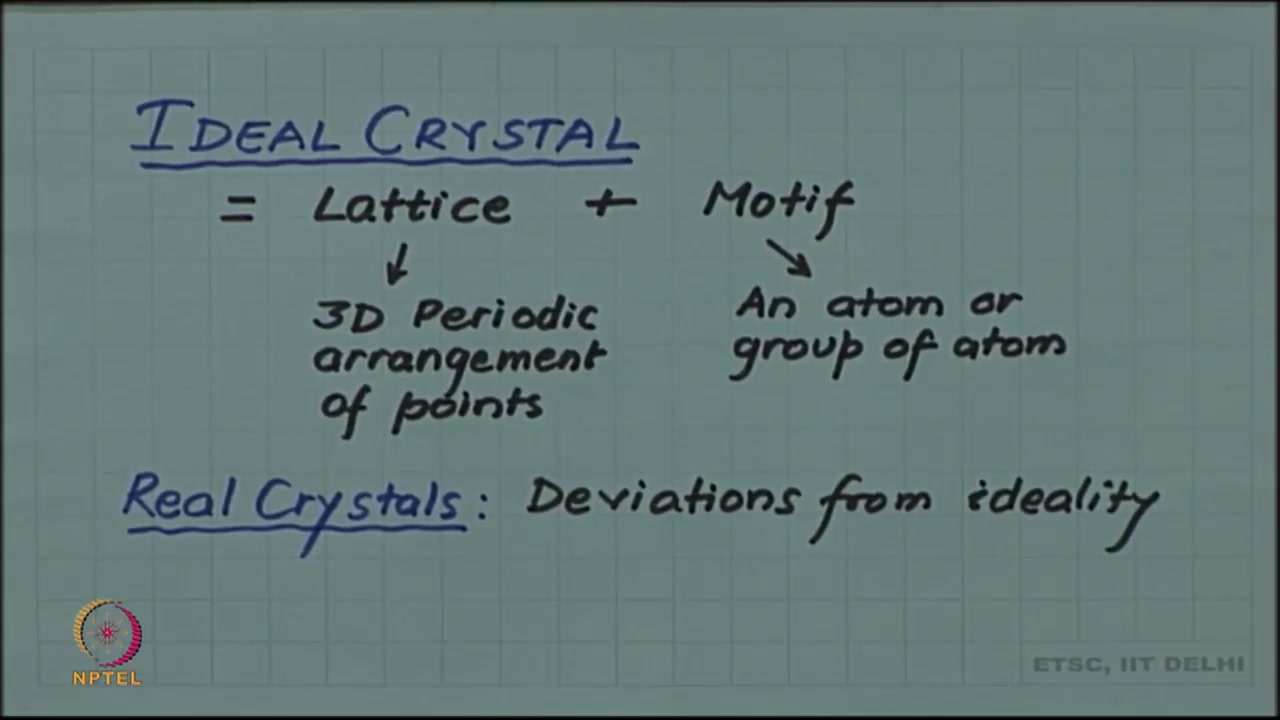 IDEAL CRYSTAL
= Lattice + Motif
3D Periodic
arrangement
of points
An atom or
group of atom
Real Crystals: Deviations from ideality
NPTEL
ETSC, IIT DELHI